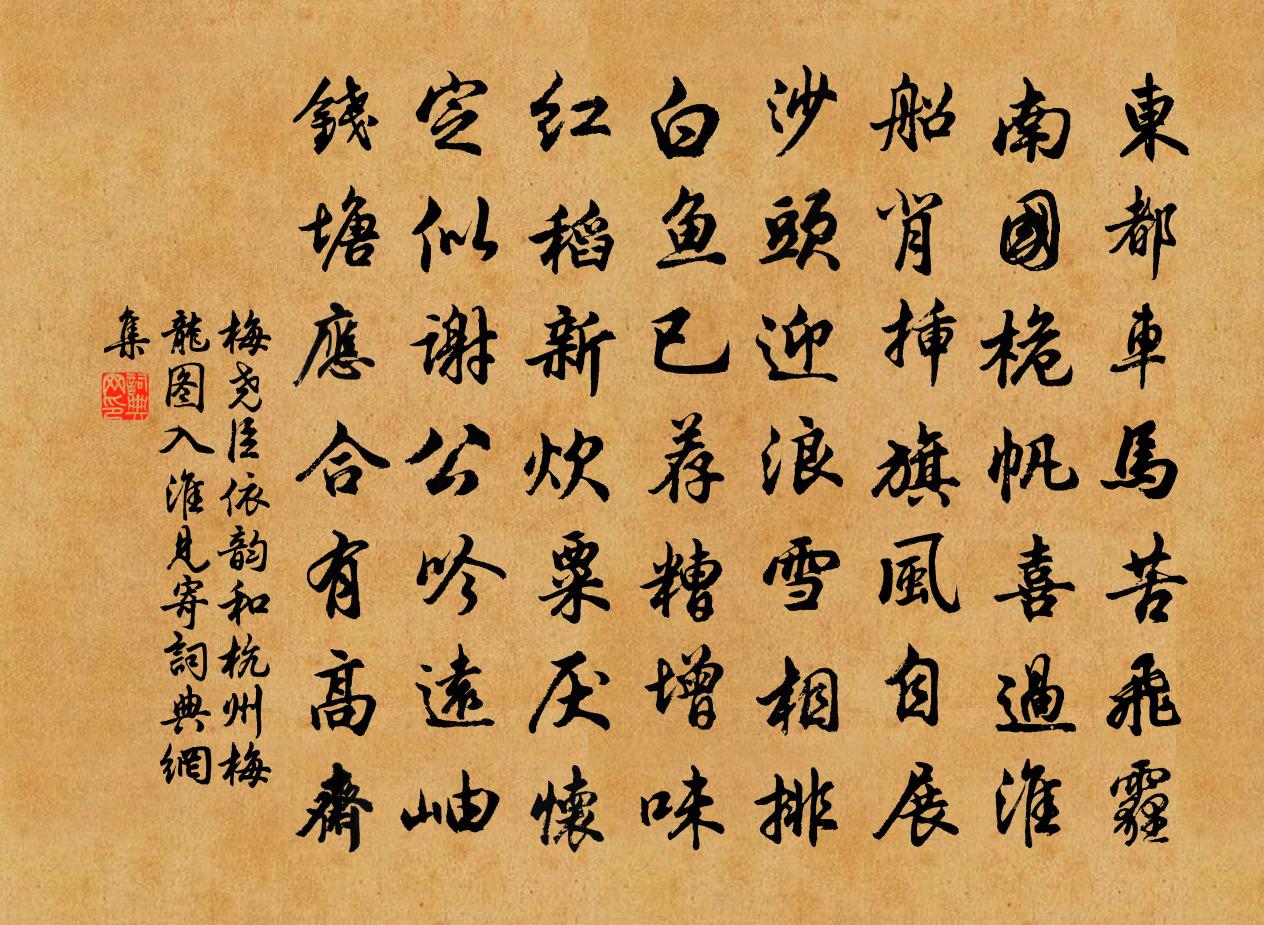 東都車馬苦飛霾
南國桅帆喜過淮
船背揷旗風自展
沙頭迎浪雪相排
白魚已荐糟增味
红稻新炊粟厌懷
定似謝公吟遠岫
錢塘應合有高齋
梅尧臣依韵和杭州梅
龍图入淮見寄詞典網
集
詞典网印